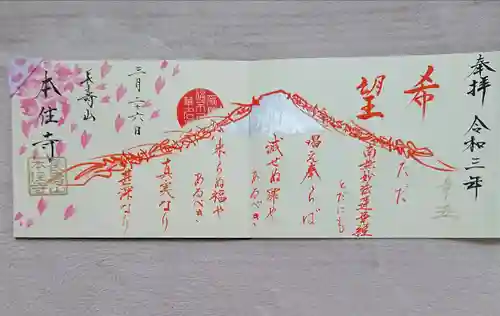 奉拝 令和三年
辛丑
希望
ただ
南無妙法蓮華経
とだにも
唱え奉らば
滅せぬ罪や
あるべき
来らぬ福や
あるべき
真実なり
甚深なり
三月二十六日
長寿山
本住寺